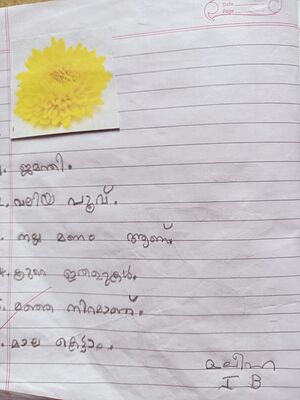 Date
Page
1. ജമന്തി.
2. വലിയ പൂവ്.
3. നല്ല മണം ആണ്.
4. കുറെ ഇതളുകൾ.
5. മഞ്ഞ നിറമാണ്.
6. മാല കെട്ടാം.
I B